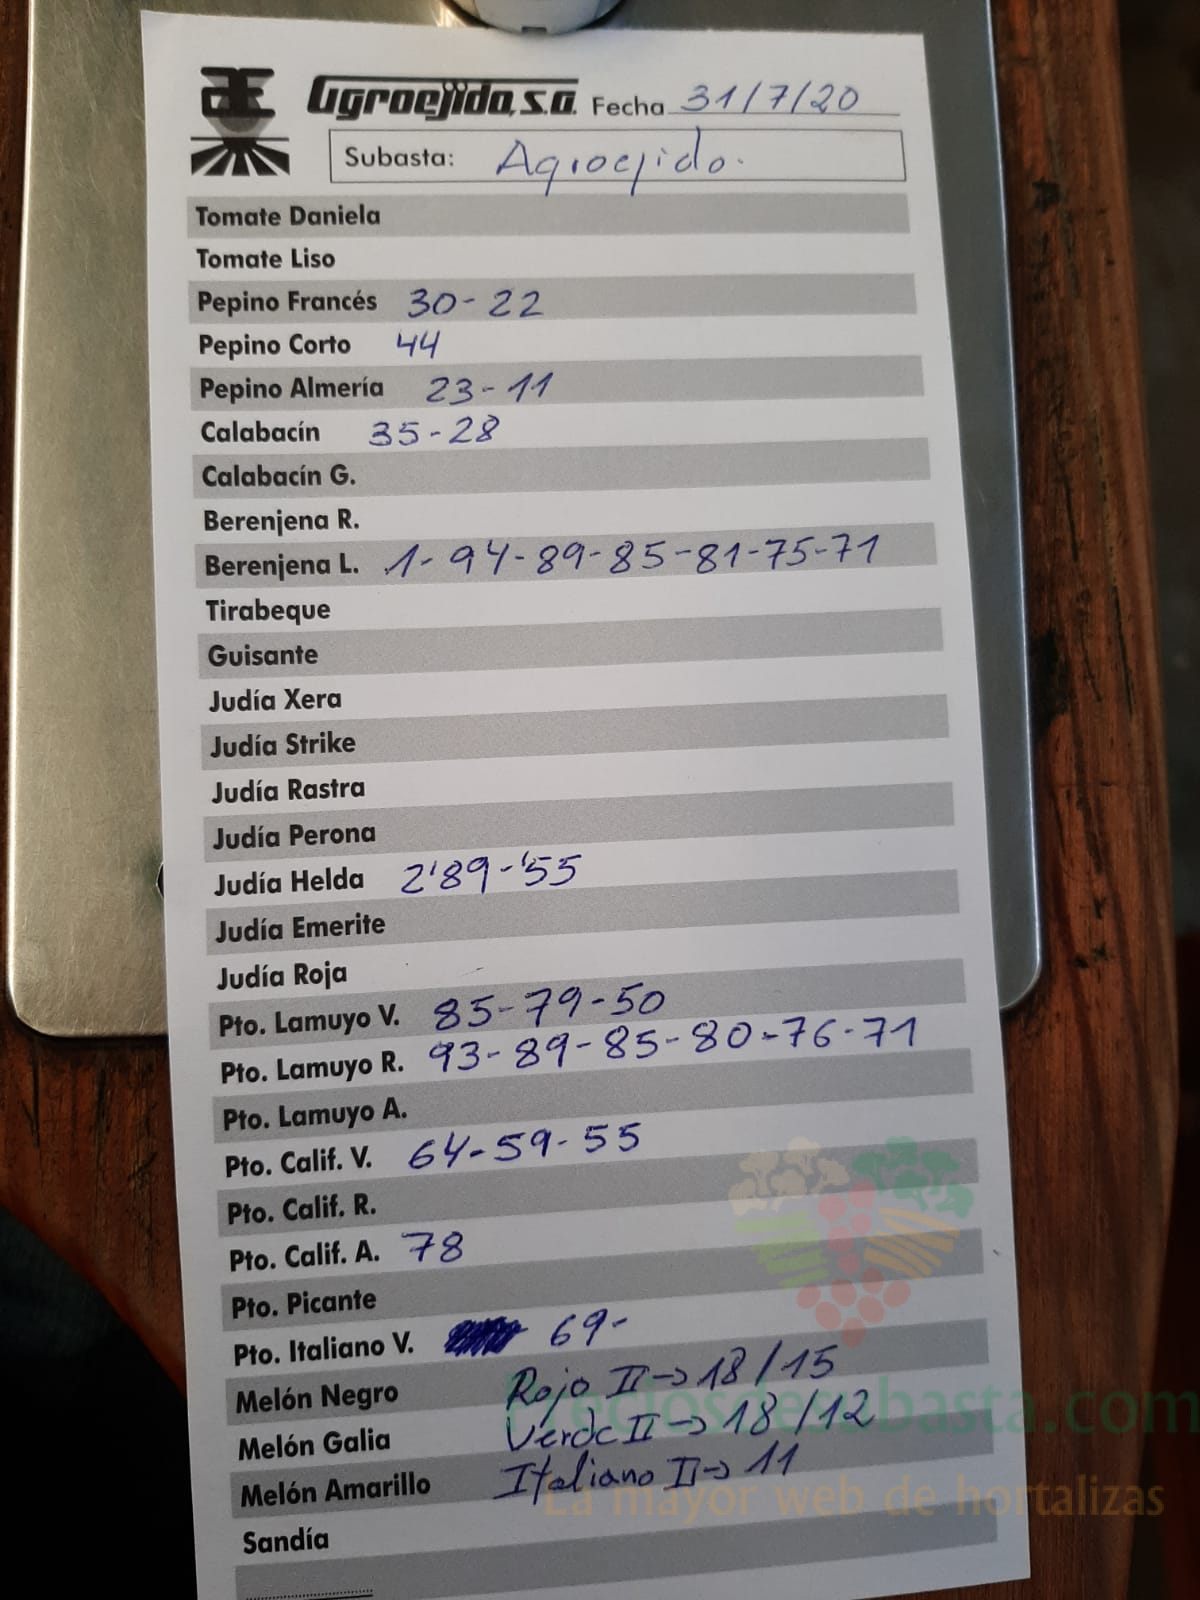 Agroejido, s.a. Fecha 31/7/20
Subasta: Agroejido.
Tomate Daniela
Tomate Liso
Pepino Francés 30-22
Pepino Corto 44
Pepino Almería 23-11
Calabacín 35-28
Calabacín G.
Berenjena R.
Berenjena L. 1-94-89-85-81-75-71
Tirabeque
Guisante
Judía Xera
Judía Strike
Judía Rastra
Judía Perona
Judía Helda 2'89-'55
Judía Emerite
Judía Roja
Pto. Lamuyo V. 85-79-50
Pto. Lamuyo R. 93-89-85-80-76-71
Pto. Lamuyo A.
Pto. Calif. V. 64-59-55
Pto. Calif. R.
Pto. Calif. A. 78
Pto. Picante
Pto. Italiano V. 69-
Melón Negro Rojo II→18/15
Melón Galia Verde II→18/12
Preciosdesubasta.com
Melón Amarillo Italiano II→11
La mayor web de hortalizas
Sandía